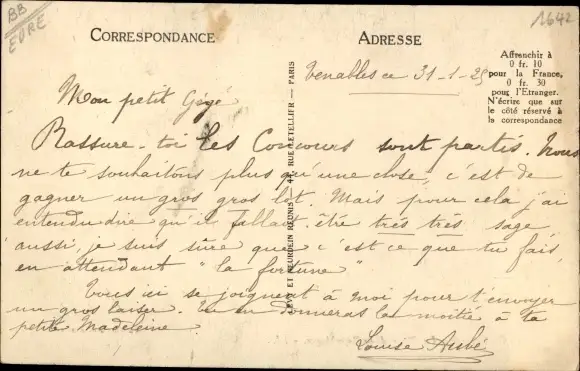 BB
EURE
1642
CORRESPONDANCE
ADRESSE
Affranchir à
0 fr. 10
pour la France,
0 fr. 30
pour l'Etranger.
N'écrire que sur
le côté réservé à
la correspondance
LEVY ET NEURDEIN REUNIS 44, RUE LETELLIER — PARIS
Venables ce 31-1-25
Mon petit Gégé
Rassure-toi les Concours sont partis. Nous
ne te souhaitons plus qu'une chose, c'est de
gagner un gros gros lot. Mais pour cela j'ai
entendu dire qu'il fallait être très très sage
aussi, je suis sûre que c'est ce que tu fais,
en attendant "la fortune"
Tous ici se joignent à moi pour t'envoyer
un gros baiser. Tu en donneras la moitié à ta
petite Madeleine.
Louise Aubé